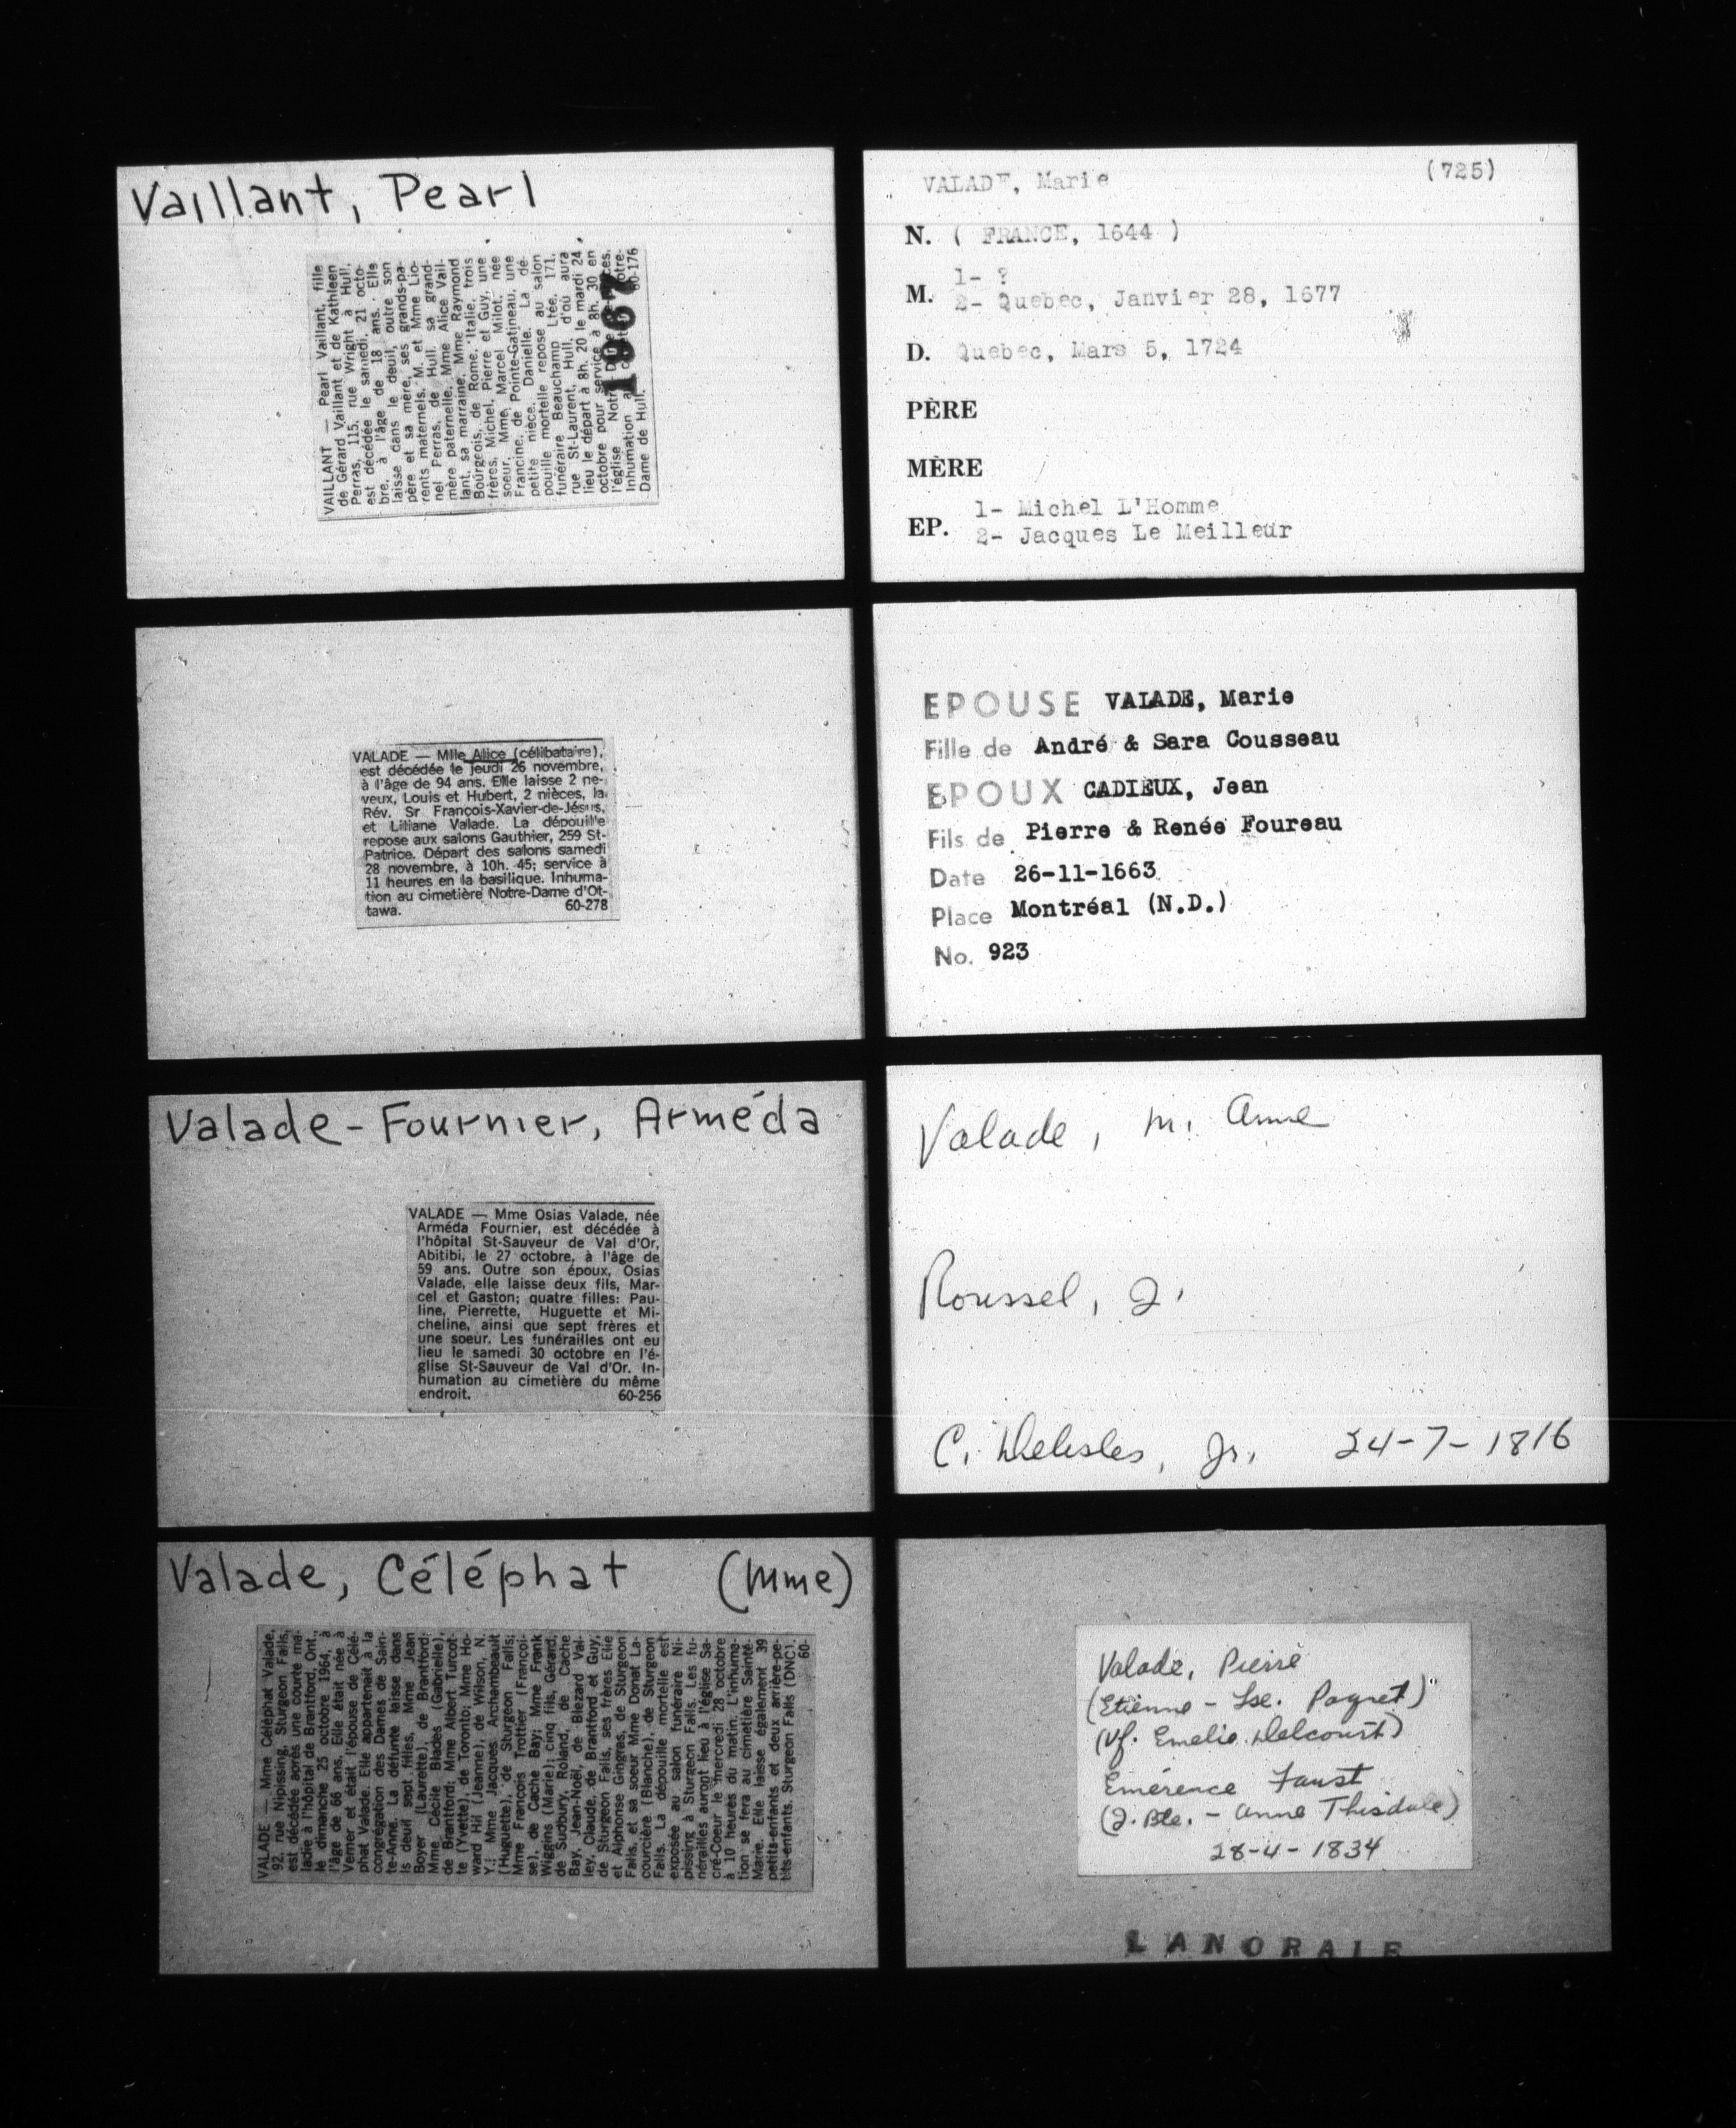 Vaillant, Pearl
VAILLANT — Pearl Vaillant, fille
de Gérard Vaillant et de Kathleen
Perras, 115, rue Wright à Hull,
est décédée le samedi, 21 octo-
bre, à l'âge de 18 ans. Elle
laisse dans le deuil, outre son
père et sa mère, ses grands-pa-
rents maternels, M. et Mme Lio-
nel Perras, de Hull, sa grand-
mère paternelle, Mme Alice Vail-
lant, sa marraine, Mme Raymond
Bourgeois, de Rome, Italie, trois
frères, Michel, Pierre et Guy, une
soeur, Mme Marcel Milot, née
Francine, de Pointe-Gatineau, une
petite nièce, Danielle. La dé-
pouille mortelle repose au salon
funéraire Beauchamp Ltée, 171,
rue St-Laurent, Hull, d'où aura
lieu le départ à 8h. 20 le mardi 24
octobre pour service à 8h. 30 en
l'église
Inhumation
Dame de Hull. 60-176
1967
VALADE — Mlle Alice (célibataire),
est décédée le jeudi 26 novembre,
à l'âge de 94 ans. Elle laisse 2 ne-
veux, Louis et Hubert, 2 nièces, la
Rév. Sr François-Xavier-de-Jésus,
et Liliane Valade. La dépouille
repose aux salons Gauthier, 259 St-
Patrice. Départ des salons samedi
28 novembre, à 10h. 45; service à
11 heures en la basilique. Inhuma-
tion au cimetière Notre-Dame d'Ot-
tawa. 60-278
Valade-Fournier, Arméda
VALADE — Mme Osias Valade, née
Arméda Fournier, est décédée à
l'hôpital St-Sauveur de Val d'Or,
Abitibi, le 27 octobre, à l'âge de
59 ans. Outre son époux, Osias
Valade, elle laisse deux fils, Mar-
cel et Gaston; quatre filles: Pau-
line, Pierrette, Huguette et Mi-
cheline, ainsi que sept frères et
une soeur. Les funérailles ont eu
lieu le samedi 30 octobre en l'é-
glise St-Sauveur de Val d'Or. In-
humation au cimetière du même
endroit. 60-256
Valade, Céléphat (Mme)
VALADE — Mme Céléphat Valade,
92, rue Nipissing, Sturgeon Falls,
est décédée après une courte ma-
ladie à l'hôpital de Brantford, Ont.,
le dimanche 25 octobre 1964, à
l'âge de 66 ans. Elle était née à
Verner et était l'épouse de Célé-
phat Valade. Elle appartenait à la
congrégation des Dames de Sain-
te-Anne. La défunte laisse dans
le deuil sept filles, Mme Jean
Boyer (Laurette), de Brantford;
Mme Cécile Blades (Gabrielle),
de Brantford; Mme Albert Turcot-
te (Yvette), de Toronto; Mme Ho-
ward Hil (Jeanne), de Wilson, N.
Y.; Mme Jacques Archambeault
(Huguette), de Sturgeon Falls;
Mme François Trottier (Françoi-
se), de Cache Bay; Mme Frank
Wiggins (Marie); cinq fils, Gérard,
de Sudbury, Roland, de Cache
Bay, Jean-Noël, de Blezard Val-
ley, Claude, de Brantford et Guy,
de Sturgeon Falls, ses frères Elie
et Alphonse Gingras, de Sturgeon
Falls, et sa soeur Mme Donat La-
courcière (Blanche), de Sturgeon
Falls. La dépouille mortelle est
exposée au salon funéraire Ni-
pissing à Sturgeon Falls. Les fu-
nérailles auront lieu à l'église Sa-
cré-Coeur le mercredi 28 octobre
à 10 heures du matin. L'inhuma-
tion se fera au cimetière Sainte-
Marie. Elle laisse également 39
petits-enfants et deux arrière-pe-
tits-enfants. Sturgeon Falls (DNC).
60-
VALADE, Marie (725)
N. ( FRANCE, 1644 )
M. 1- ?
2- Quebec, Janvier 28, 1677
D. Quebec, Mars 5, 1724
PÈRE
MÈRE
EP. 1- Michel L'Homme
2- Jacques Le Meilleur
EPOUSE VALADE, Marie
Fille de André & Sara Cousseau
EPOUX CADIEUX, Jean
Fils de Pierre & Renée Foureau
Date 26-11-1663
Place Montréal (N.D.)
No. 923
Valade, m. Anne
Roussel, J.
C. Delisles, Jr. 24-7-1816
Valade, Pierre
(Etienne - Lse. Payret)
(Vf. Emelie Delcourt)
Emérence Faust
(J. Bte. - Anne Thisdale)
28-4-1834
LANORAIE